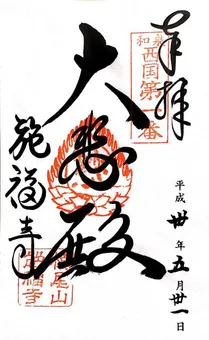 奉拝
和泉
西国第一番
平成卅年五月卅一日
大悲殿
施福寺
槇尾山
施福寺